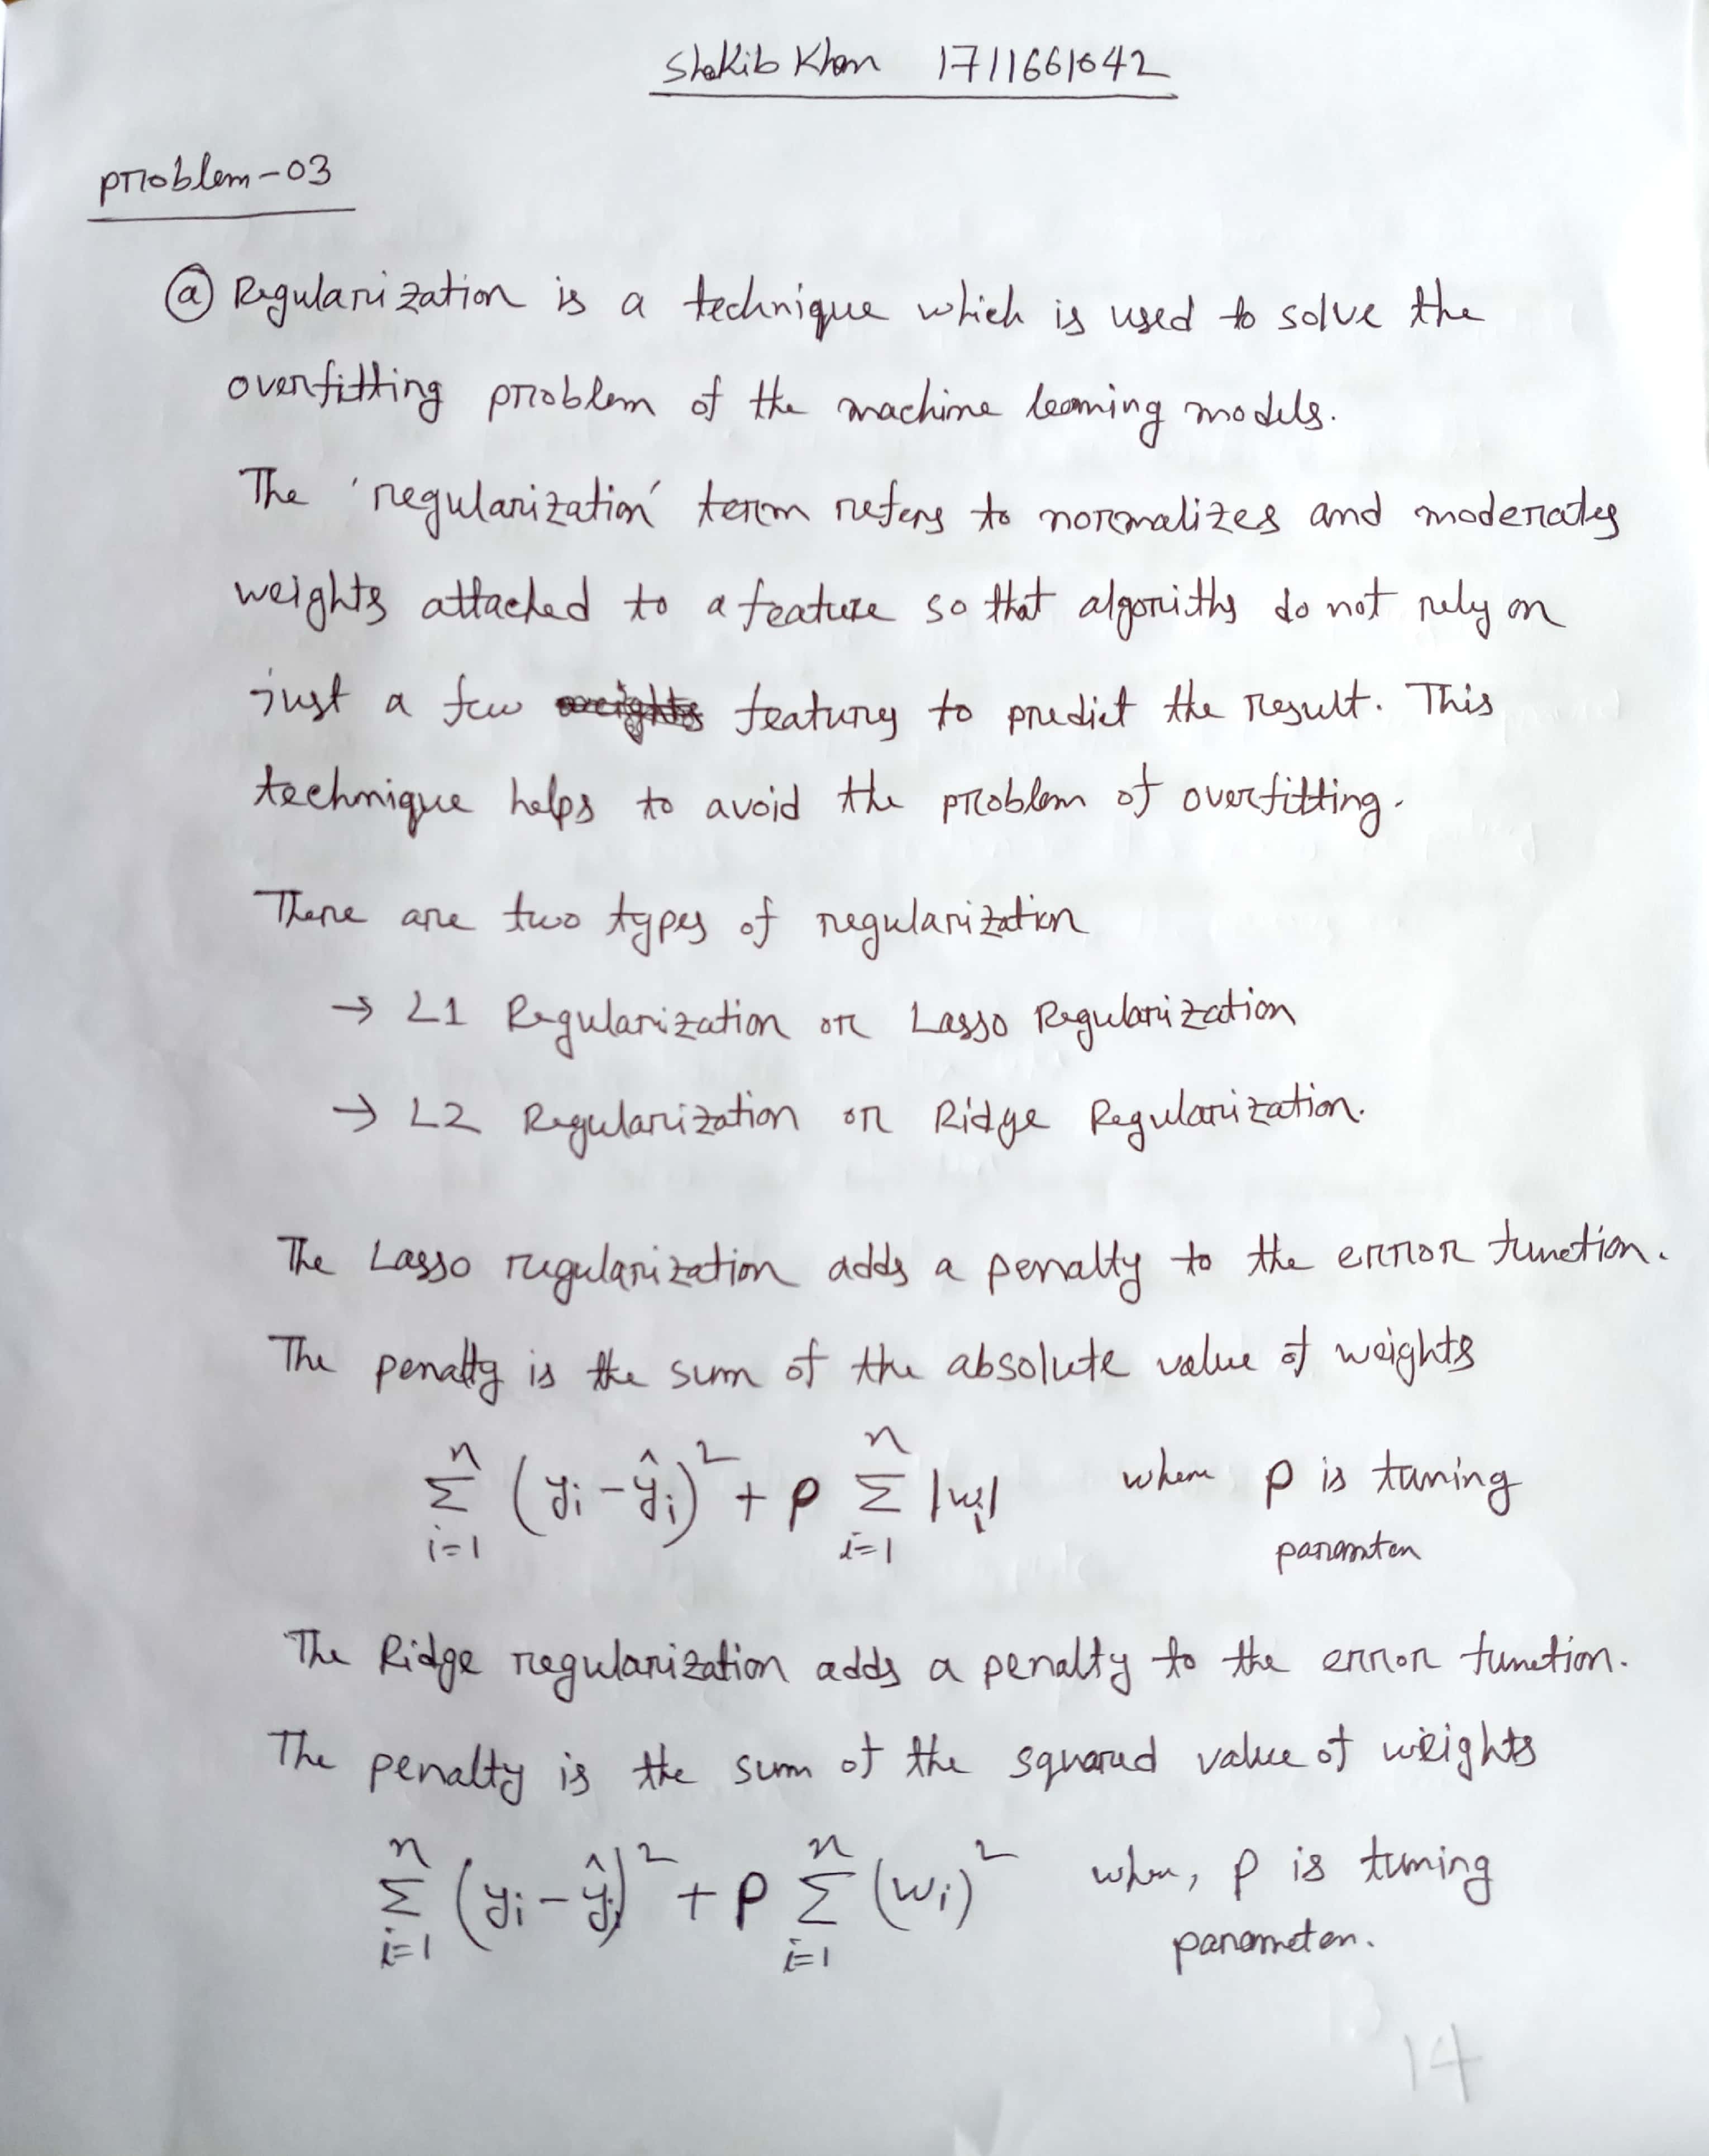 Shakib Khan 1711661042
problem-03
ⓐ Regularization is a technique which is used to solve the
overfitting problem of the machine learning models.
The 'regularization' term refers to normalizes and moderates
weights attached to a feature so that algoriths do not rely on
just a few features to predict the result. This
technique helps to avoid the problem of overfitting.
There are two types of regularization
→ L1 Regularization or Lasso Regularization
→ L2 Regularization or Ridge Regularization.
The Lasso regularization adds a penalty to the error function.
The penalty is the sum of the absolute value of weights
n n
Σ (yᵢ - ŷᵢ)² + ρ Σ |wᵢ| where ρ is tuning
i=1 i=1 paramter
The Ridge regularization adds a penalty to the error function.
The penalty is the sum of the squared value of weights
n n
Σ (yᵢ - ŷᵢ)² + ρ Σ (wᵢ)² when, ρ is tuning
i=1 i=1 parameter.
14